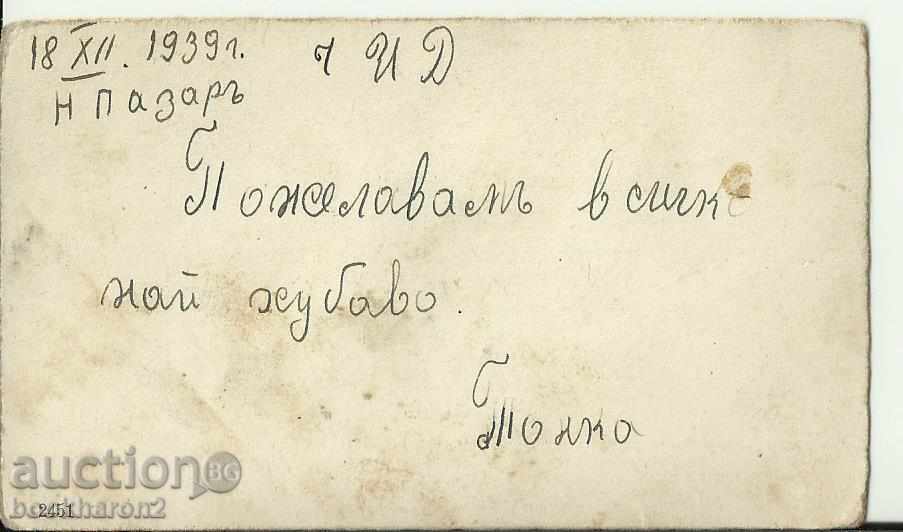 18 XII. 1939 г. ч И Д
Н Пазаръ
Пожелавамъ всичко
най хубаво.
Тонка
auction BG
boskharon2
2451